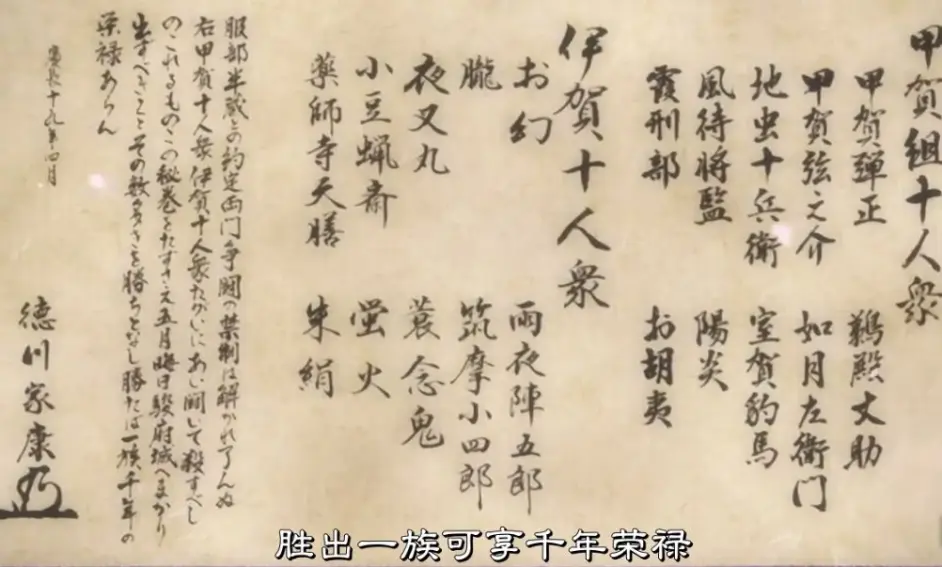 甲賀組十人衆
甲賀弾正　鵜殿丈助
甲賀弦之介　如月左衛門
地虫十兵衛　室賀豹馬
風待将監　陽炎
霞刑部　お胡夷
伊賀十人衆
お幻　雨夜陣五郎
朧　筑摩小四郎
夜叉丸　蓑念鬼
小豆蝋斎　蛍火
薬師寺天膳　朱絹
服部半蔵との約定両門争闘の禁制は解かれ了んぬ
右甲賀十人衆伊賀十人衆たがいにあい闘いて殺すべし
のこれるものこの秘巻をたずさえ五月晦日駿府城へまかり
出ずべきことその数多きを勝ちとなし勝たば一族千年の
栄禄あらん
慶長十九年四月
徳川家康
胜出一族可享千年荣禄